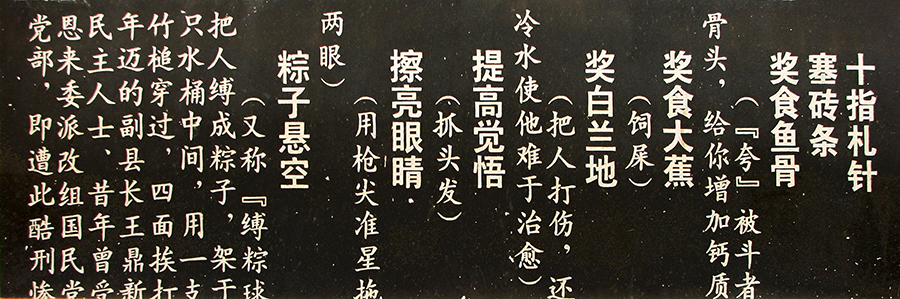 十指札针
塞砖条
奖食鱼骨
（『夸』被斗者
骨头，给你增加钙质
奖食大蕉
（饲屎）
奖白兰地
（把人打伤，还
冷水使他难于治愈）
提高觉悟
（抓头发）
擦亮眼睛
（用枪尖准星拖
两眼）
粽子悬空
（又称『缚粽球
把人缚成粽子，架于
只水桶中间，用一支
竹槌穿过，四面挨打
年迈的副县长王鼎新
民主人士、昔年曾受
恩来委派改组国民党
党部，即遭此酷刑惨